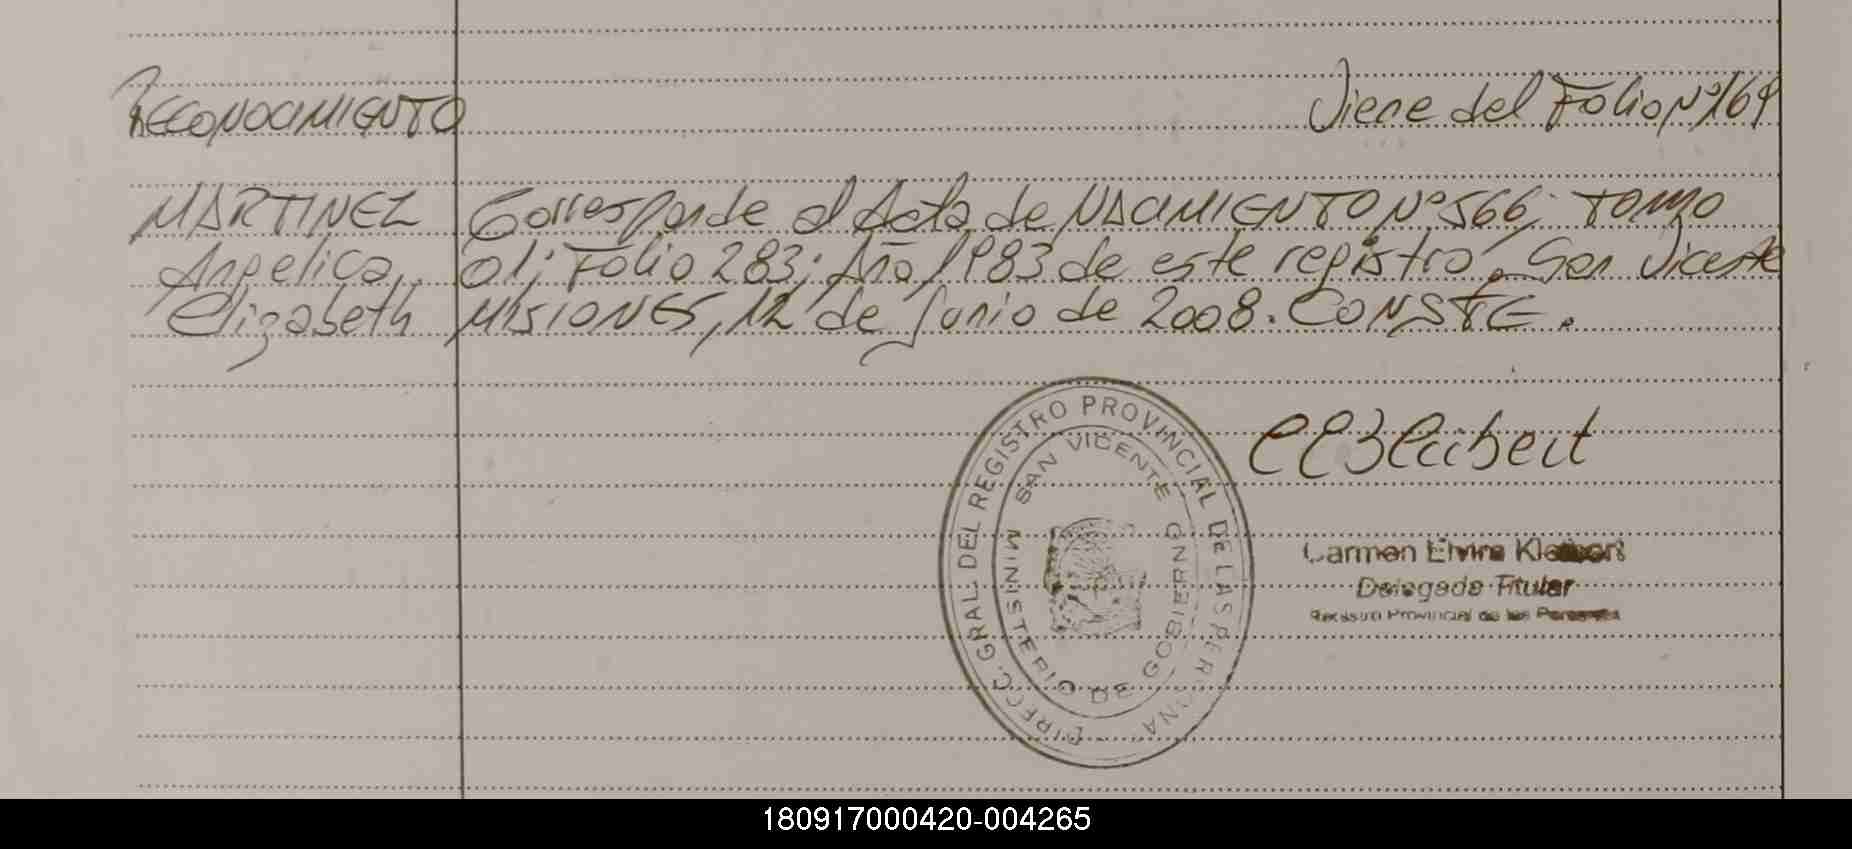 Reconocimiento Viene del Folio Nº 169
MARTINEZ Corresponde al Acta de NACIMIENTO Nº 566; TOMO
Angelica 01; Folio 283; Año 1983 de este registro. San Vicente
Elizabeth MISIONES, 12 de Junio de 2008. CONSTE.
DIRECC. GRAL. DEL REGISTRO PROVINCIAL DE LAS PERSONA
SAN VICENTE
MINISTERIO DE GOBIERNO
Carmen Elvira
Delegada Titular
Registro Provincial de las Personas
180917000420-004265